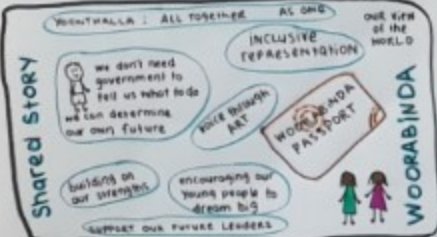 YOONTHALLA : ALL TOGETHER AS ONE
OUR VIEW
of the
WORLD
INCLUSIVE
REPRESENTATION
we don't need
government to
tell us what to do
we can determine
our own future
VOICE THROUGH
ART
WOORABINDA
PASSPORT
Shared STORY
WOORABINDA
building on
our strengths
encouraging our
young people to
dream big
SUPPORT OUR FUTURE LEADERS